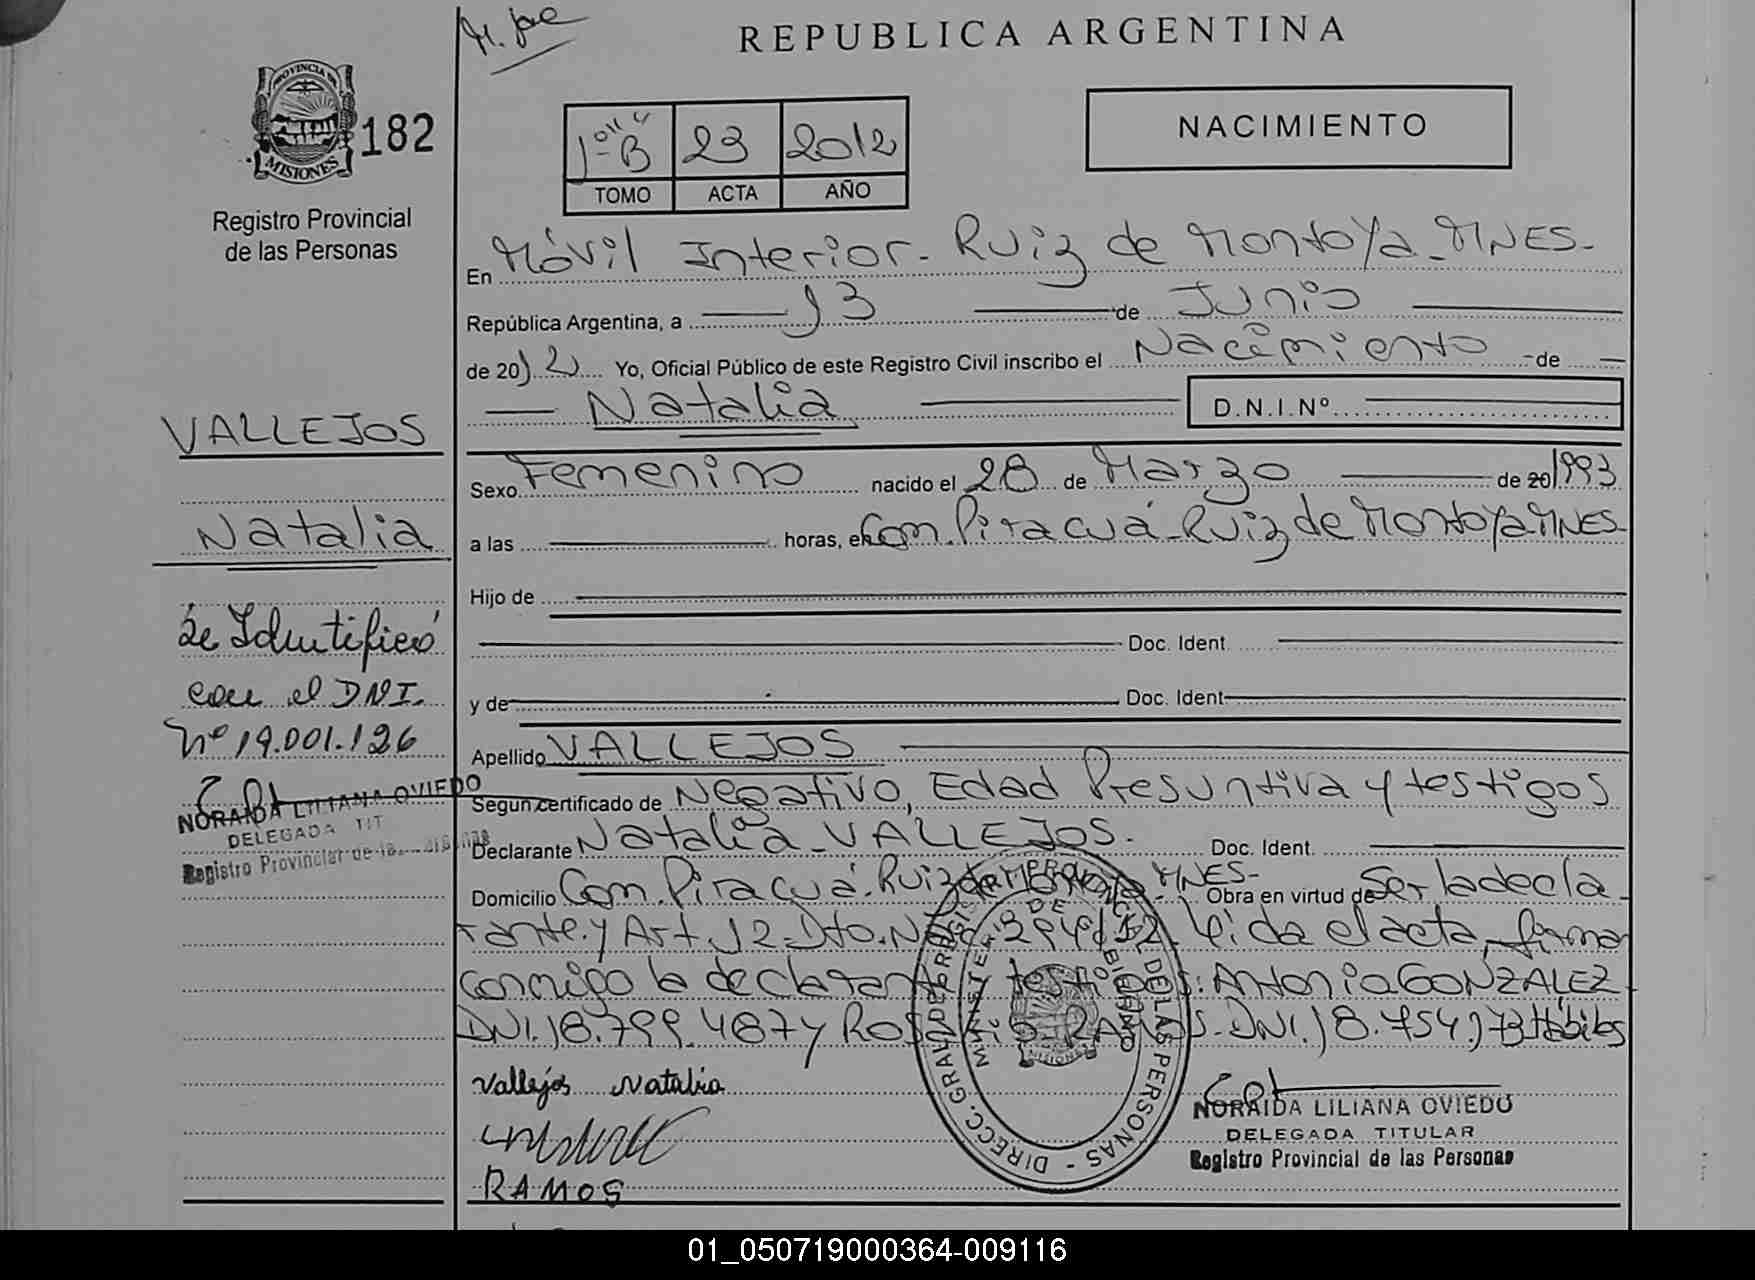 M. Jose
REPUBLICA ARGENTINA
PROVINCIA DE
MISIONES
182
Registro Provincial
de las Personas
1º B 23 2012
TOMO ACTA AÑO
NACIMIENTO
En Móvil Interior - Ruiz de Montoya - MNES -
República Argentina, a 13 de Junio
de 2012 Yo, Oficial Público de este Registro Civil inscribo el Nacimiento de
Natalia D.N.I.Nº
VALLEJOS
Natalia
Se Identificó
con el DNI.
Nº 19.001.126
NORAIDA LILIANA OVIEDO
DELEGADA TIT
Registro Provincial de las
Sexo Femenino nacido el 28 de Marzo de 20 1993
a las horas, en Com. Piracuá - Ruiz de Montoya MNES-
Hijo de
Doc. Ident.
y de Doc. Ident
Apellido VALLEJOS
Segun certificado de Negativo, Edad Presuntiva y testigos
Declarante Natalia VALLEJOS. Doc. Ident.
Domicilio Com. Piracuá - Ruiz de Montoya MNES- Obra en virtud de Ser la decla
rante. y Art. 12 - Dto. Nac. Leida el acta, firma
conmigo la declarante testigos: Antonia GONZALEZ
DNI. 18.799.487 y RAMOS - DNI. 18.754.173 Hábiles
Vallejos Natalia
RAMOS
DIRECC. GRAL. DEL REGISTRO PROVINCIAL DE LAS PERSONAS -
MINISTERIO DE GOBIERNO
MISIONES
NORAIDA LILIANA OVIEDO
DELEGADA TITULAR
Registro Provincial de las Personas
01_050719000364-009116